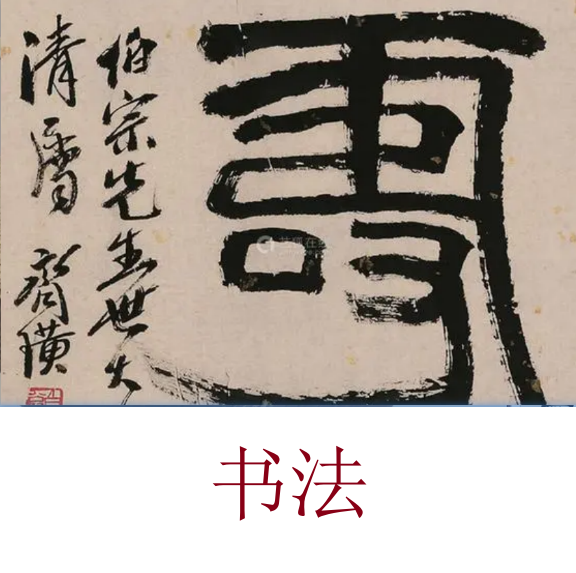 壽
伯宗先生世大
清屬 齊璜
书法